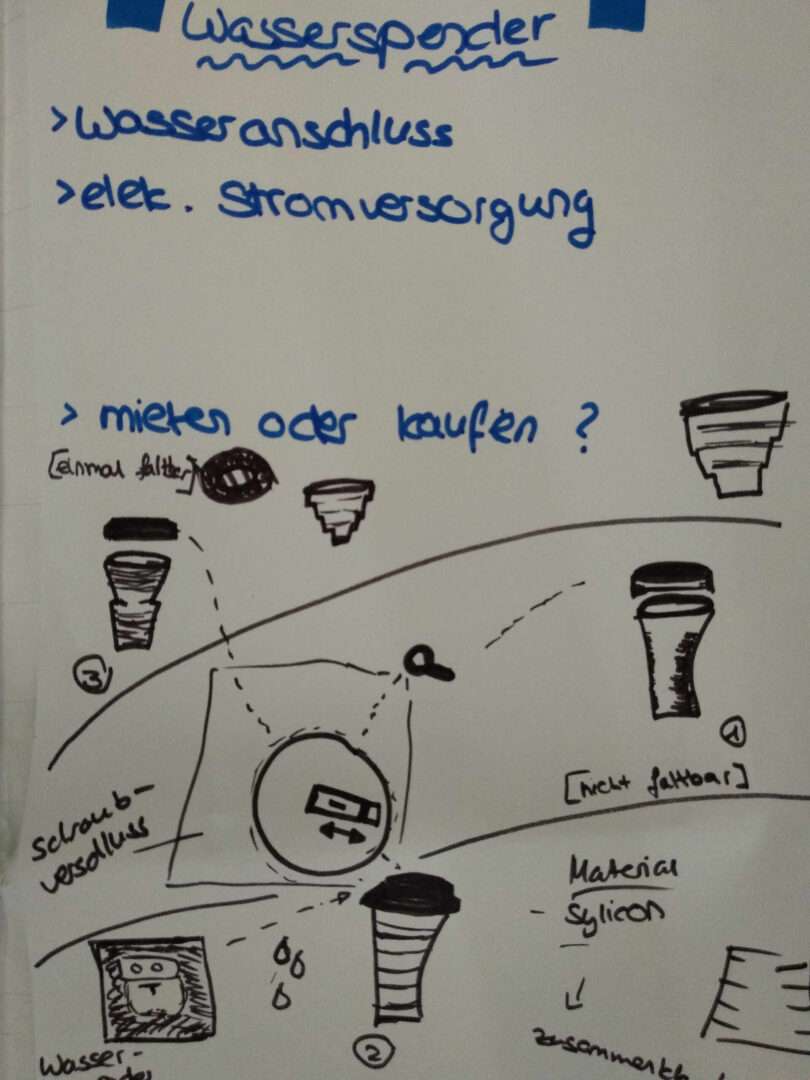 Wasserspender
> Wasseranschluss
> elek. Stromversorgung
> mieten oder kaufen ?
[einmal faltbar]
3
1
[nicht faltbar]
Schraub-
verschluss
Material
- Sylicon
2
Wasser-